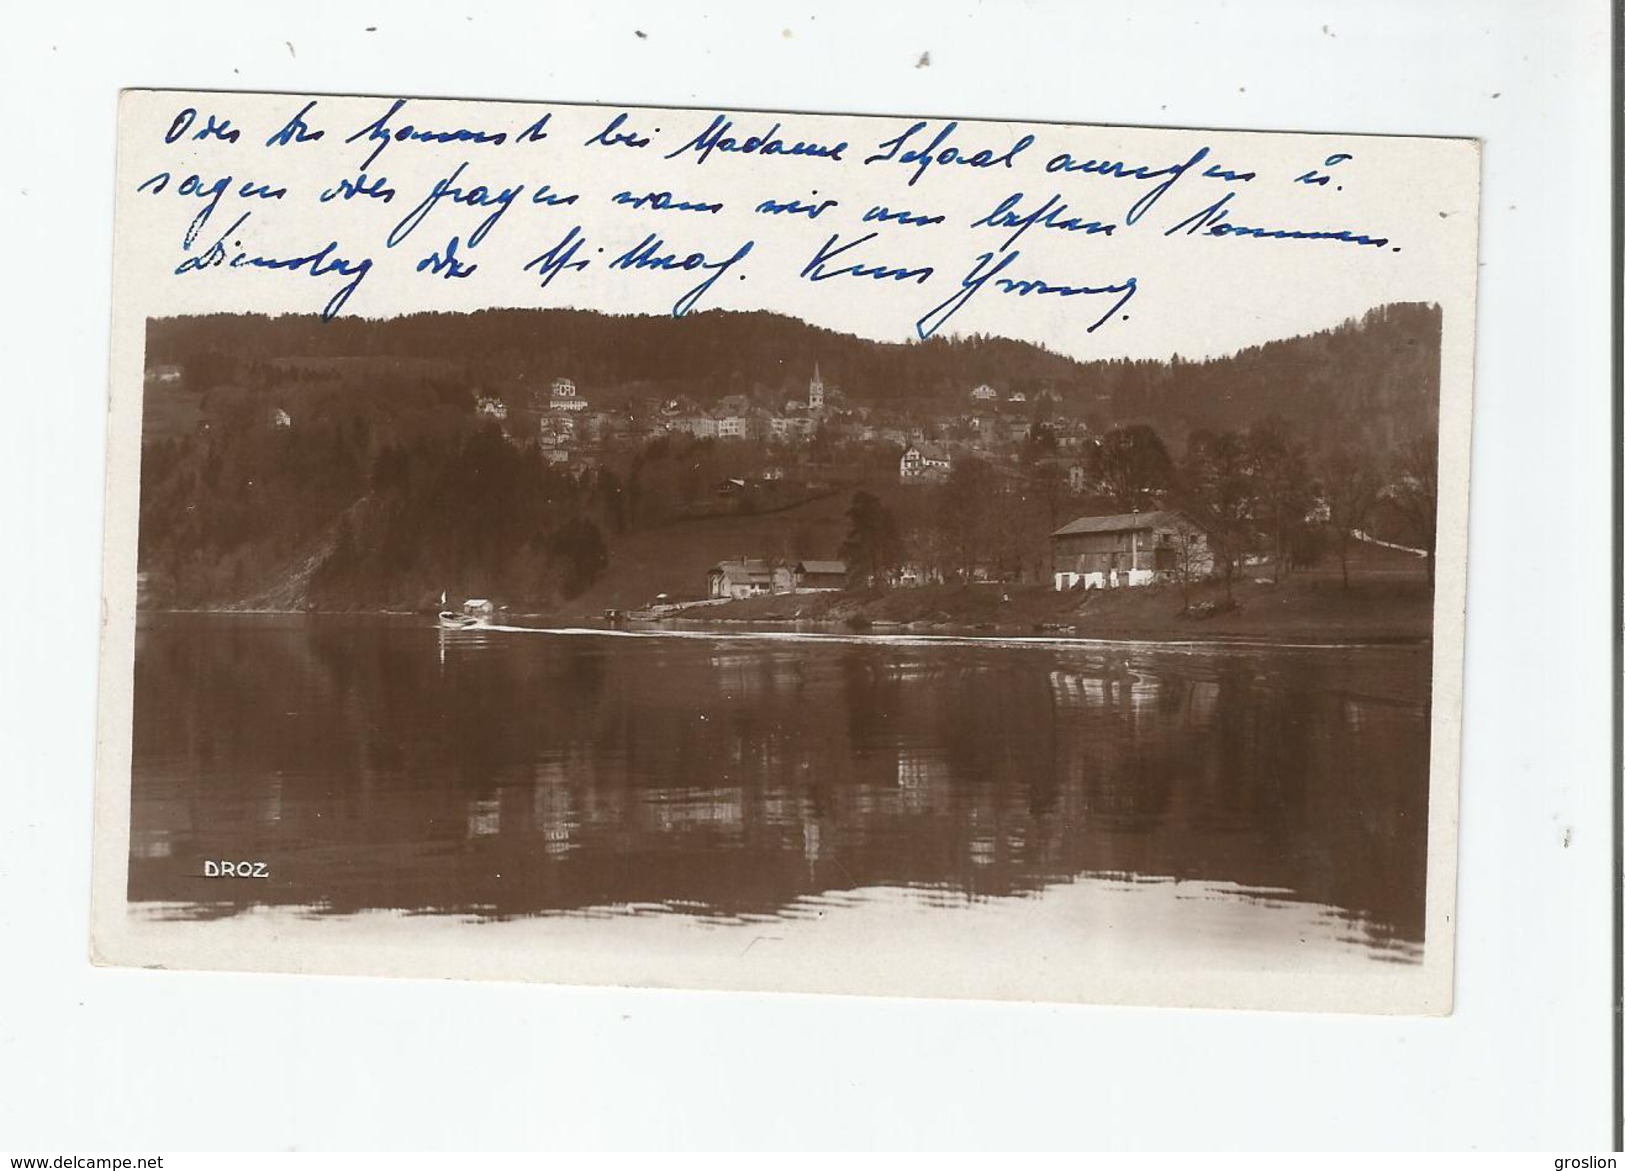 Oder Du kannst bei Madame Schaal anrufen u.
sagen oder fragen wann wir am besten kommen.
Dienstag oder Mittwoch. Kuss Yvonny.
DROZ
www.delcampe.net
groslion